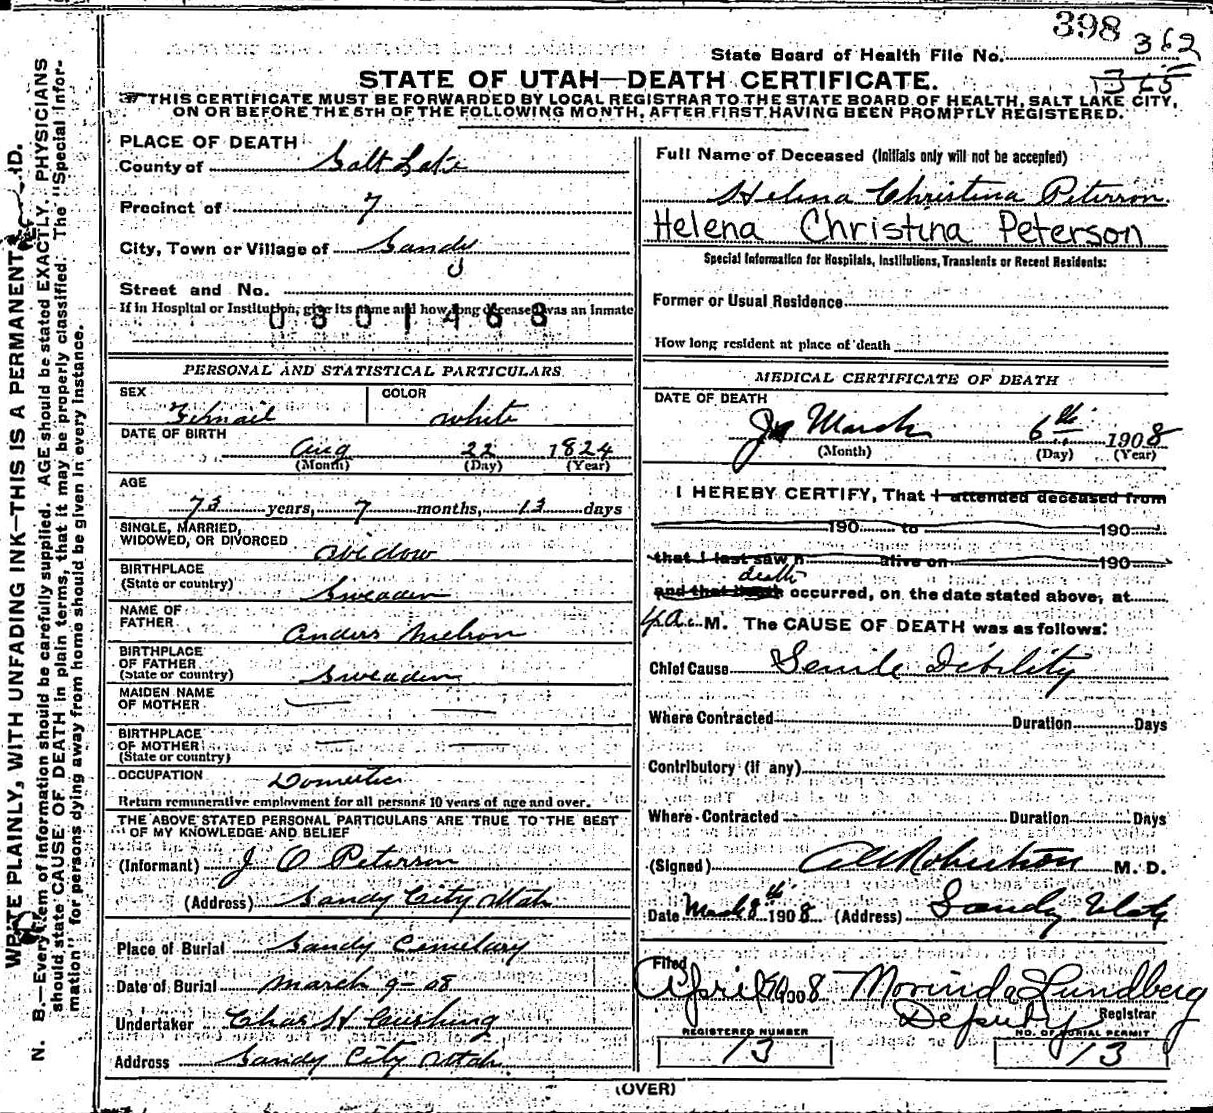 398
State Board of Health File No. 362
365
STATE OF UTAH—DEATH CERTIFICATE.
THIS CERTIFICATE MUST BE FORWARDED BY LOCAL REGISTRAR TO THE STATE BOARD OF HEALTH, SALT LAKE CITY,
ON OR BEFORE THE 5TH OF THE FOLLOWING MONTH, AFTER FIRST HAVING BEEN PROMPTLY REGISTERED.
WRITE PLAINLY, WITH UNFADING INK—THIS IS A PERMANENT
N. B.—Every item of information should be carefully supplied. AGE should be stated EXACTLY. PHYSICIANS
should state CAUSE OF DEATH in plain terms, that it may be properly classified. The "Special Infor-
mation" for persons dying away from home should be given in every instance.
PLACE OF DEATH
County of Salt Lake
Precinct of 7
City, Town or Village of Sandy
Street and No.
If in Hospital or Institution, give its name and how long deceased was an inmate
0801468
PERSONAL AND STATISTICAL PARTICULARS
SEX Femail COLOR white
DATE OF BIRTH
Aug 22 1824
(Month) (Day) (Year)
AGE
73 years, 7 months, 13 days
SINGLE, MARRIED,
WIDOWED, OR DIVORCED widow
BIRTHPLACE
(State or country) Sweaden
NAME OF
FATHER Anders Nielson
BIRTHPLACE
OF FATHER
(State or country) Sweaden
MAIDEN NAME
OF MOTHER — —
BIRTHPLACE
OF MOTHER
(State or country) — —
OCCUPATION Domestic
Return remunerative employment for all persons 10 years of age and over.
THE ABOVE STATED PERSONAL PARTICULARS ARE TRUE TO THE BEST
OF MY KNOWLEDGE AND BELIEF
(Informant) J O Peterson
(Address) Sandy City Utah
Place of Burial Sandy Cemetary
Date of Burial March 9-08
Undertaker Chas H Cushing
Address Sandy City Utah
Full Name of Deceased (Initials only will not be accepted)
Helena Christina Peterson
Helena Christina Peterson
Special Information for Hospitals, Institutions, Transients or Recent Residents:
Former or Usual Residence
How long resident at place of death
MEDICAL CERTIFICATE OF DEATH
DATE OF DEATH
March 6th 1908
(Month) (Day) (Year)
I HEREBY CERTIFY, That I attended deceased from
190 to 190
that I last saw h alive on 190
death
and that death occurred, on the date stated above, at
4 a. M. The CAUSE OF DEATH was as follows:
Chief Cause Senile Debility
Where Contracted Duration Days
Contributory (if any)
Where Contracted Duration Days
(Signed) A A Robertson M. D.
Date March 8th 1908 (Address) Sandy Utah
Filed
April 1908 Morinda Lundberg
Deputy Registrar
REGISTERED NUMBER NO. OF BURIAL PERMIT
13 13
(OVER)